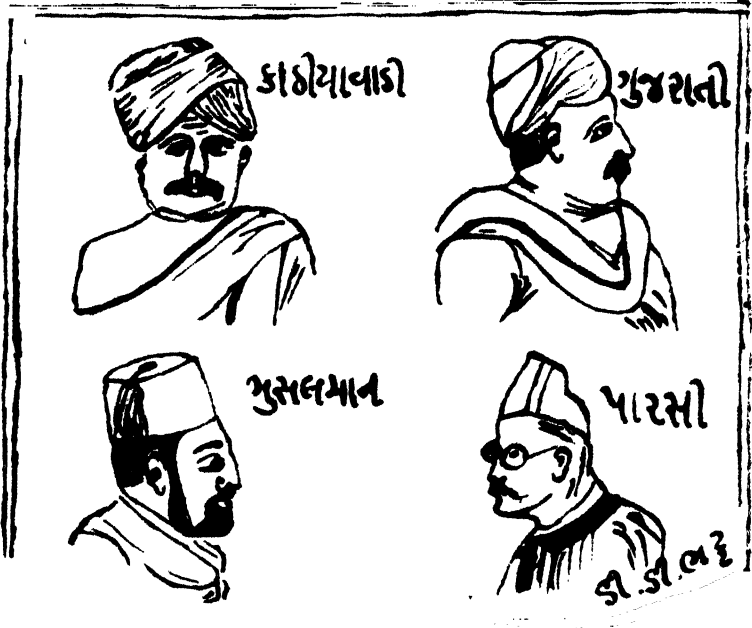 કાઠીયાવાડી
ગુજરાતી
મુસલમાન
પારસી
ડી.ડી.ભટ્ટ